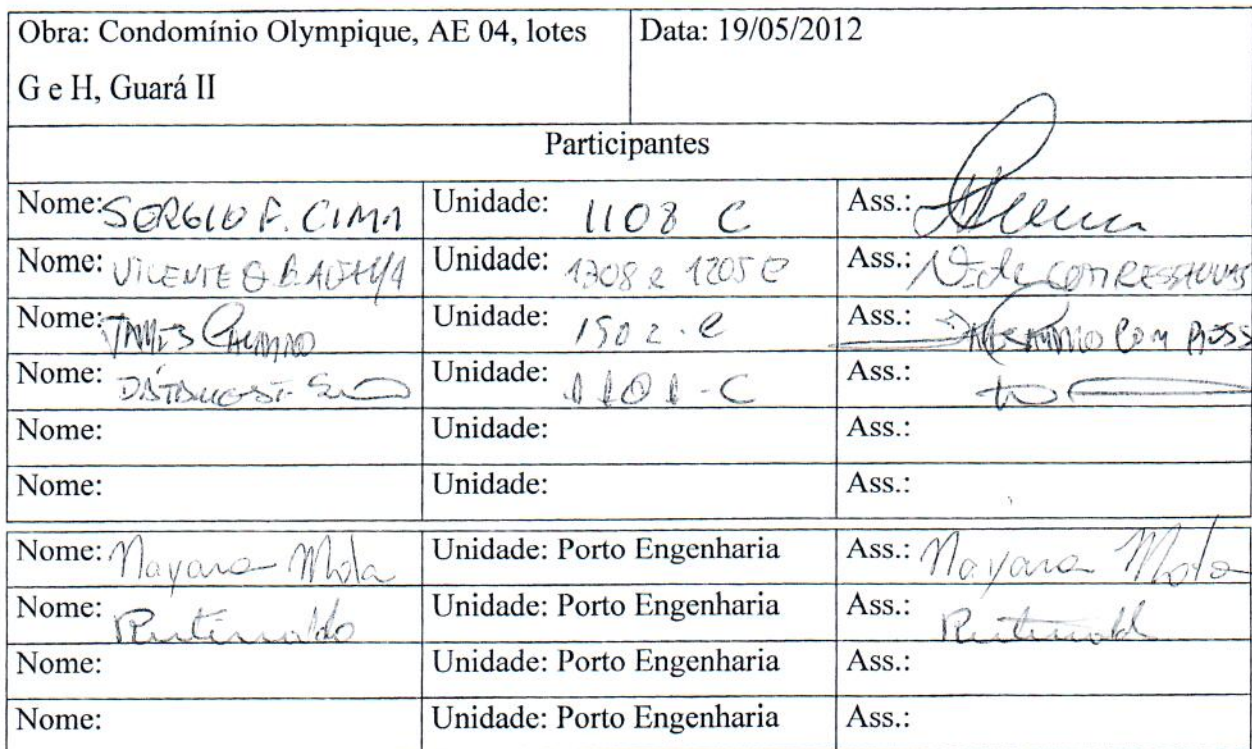 Obra: Condomínio Olympique, AE 04, lotes G e H, Guará II
Data: 19/05/2012
Participantes
Nome: SERGIO F. CIMA Unidade: 1108 C Ass.:
Nome: VICENTE Unidade: 1308 e 1205 C Ass.: COM RESSALVAS
Nome: Unidade: 1502-C Ass.: COM
Nome: Unidade: 1101-C Ass.:
Nome: Unidade: Ass.:
Nome: Unidade: Ass.:
Nome: Nayara Mota Unidade: Porto Engenharia Ass.: Nayara Mota
Nome: Unidade: Porto Engenharia Ass.:
Nome: Unidade: Porto Engenharia Ass.:
Nome: Unidade: Porto Engenharia Ass.: